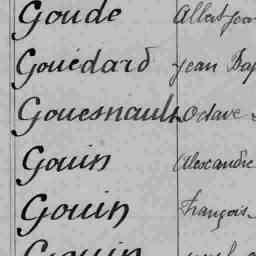 Goude Albert Jean
Gouédard Jean Bap
Gouesnault Octave
Gouin Alexandre
Gouin François
Gouin